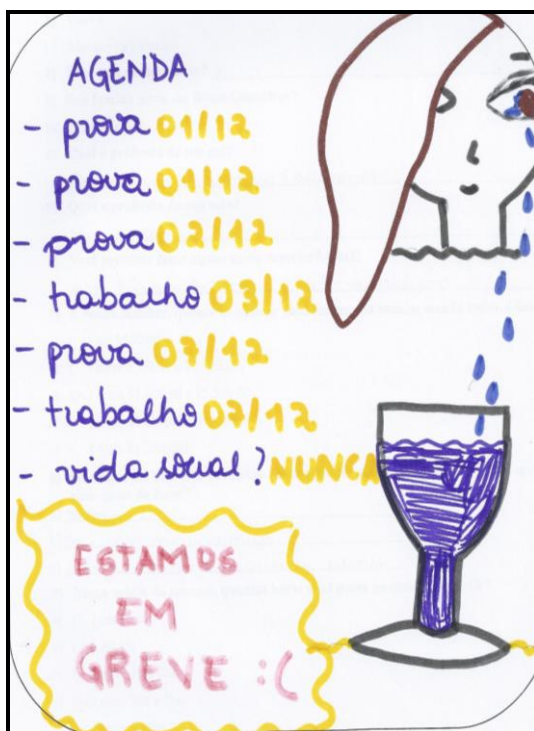 AGENDA
- prova 01/12
- prova 01/12
- prova 02/12
- trabalho 03/12
- prova 07/12
- trabalho 07/12
- vida social? NUNCA
ESTAMOS
EM
GREVE :(